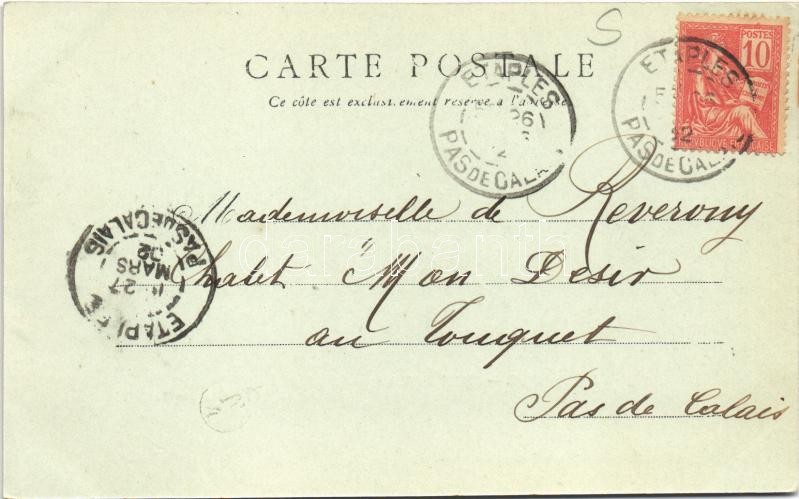 S
CARTE POSTALE
Ce côté est exclusivement réservé à l'adresse
POSTES
10
RÉPUBLIQUE FRANÇAISE
ETAPLES
26
PAS DE CALAIS
ETAPLES
PAS DE CALAIS
ETAPLES
27
MARS
02
PAS DE CALAIS
Mademoiselle de Reverony
Chalet "Mon Desir
au Touquet
Pas de Calais
darabanth